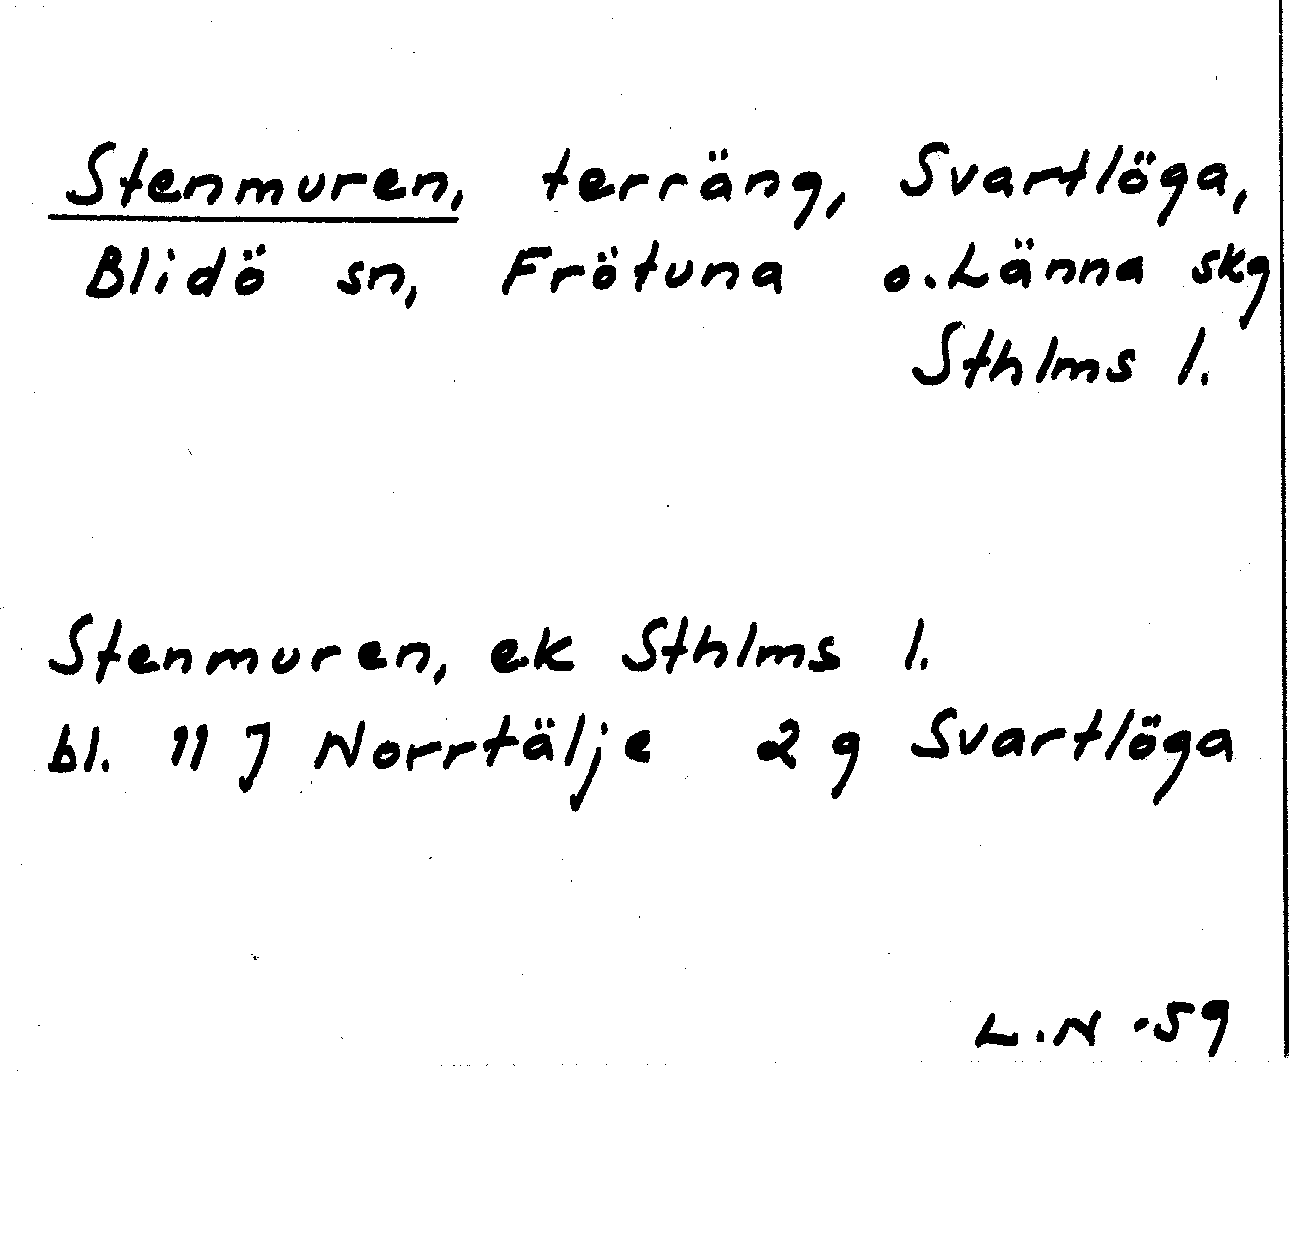 Stenmuren, terräng, Svartlöga,
Blidö sn, Frötuna o. Länna skg
Sthlms l.
Stenmuren, ek Sthlms l.
bl. 11 J Norrtälje 2 g Svartlöga
L.N -59